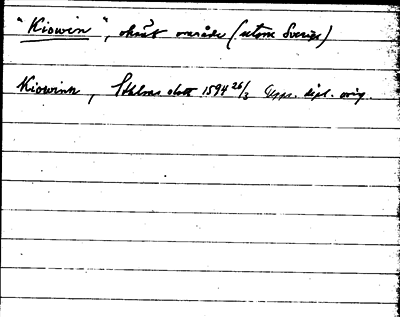 "Kiowin", okänt område (utom Sverige)
Kiowinn, Sthlms slott 1594 26/3 Upps. dipl. orig.